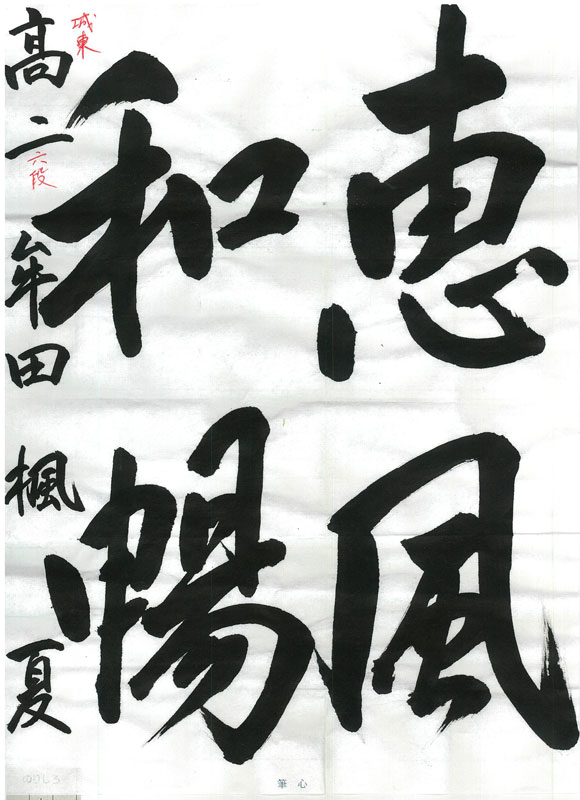 恵風
和暢
城東
高二 牟田 楓夏
六段
のりしろ
筆心